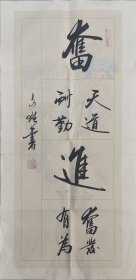 奮
天道
酬勤
進
奮發
有為
書